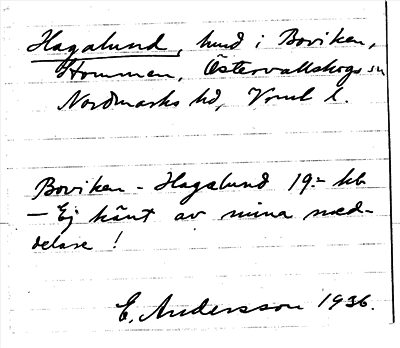 Hagalund, hmd i Boviken,
Hommen, Östervallskogs sn
Nordmarks hd, Vrml l.
Boviken - Hagalund 19:- kb
- Ej känt av mina med-
delare!
E. Andersson 1936.